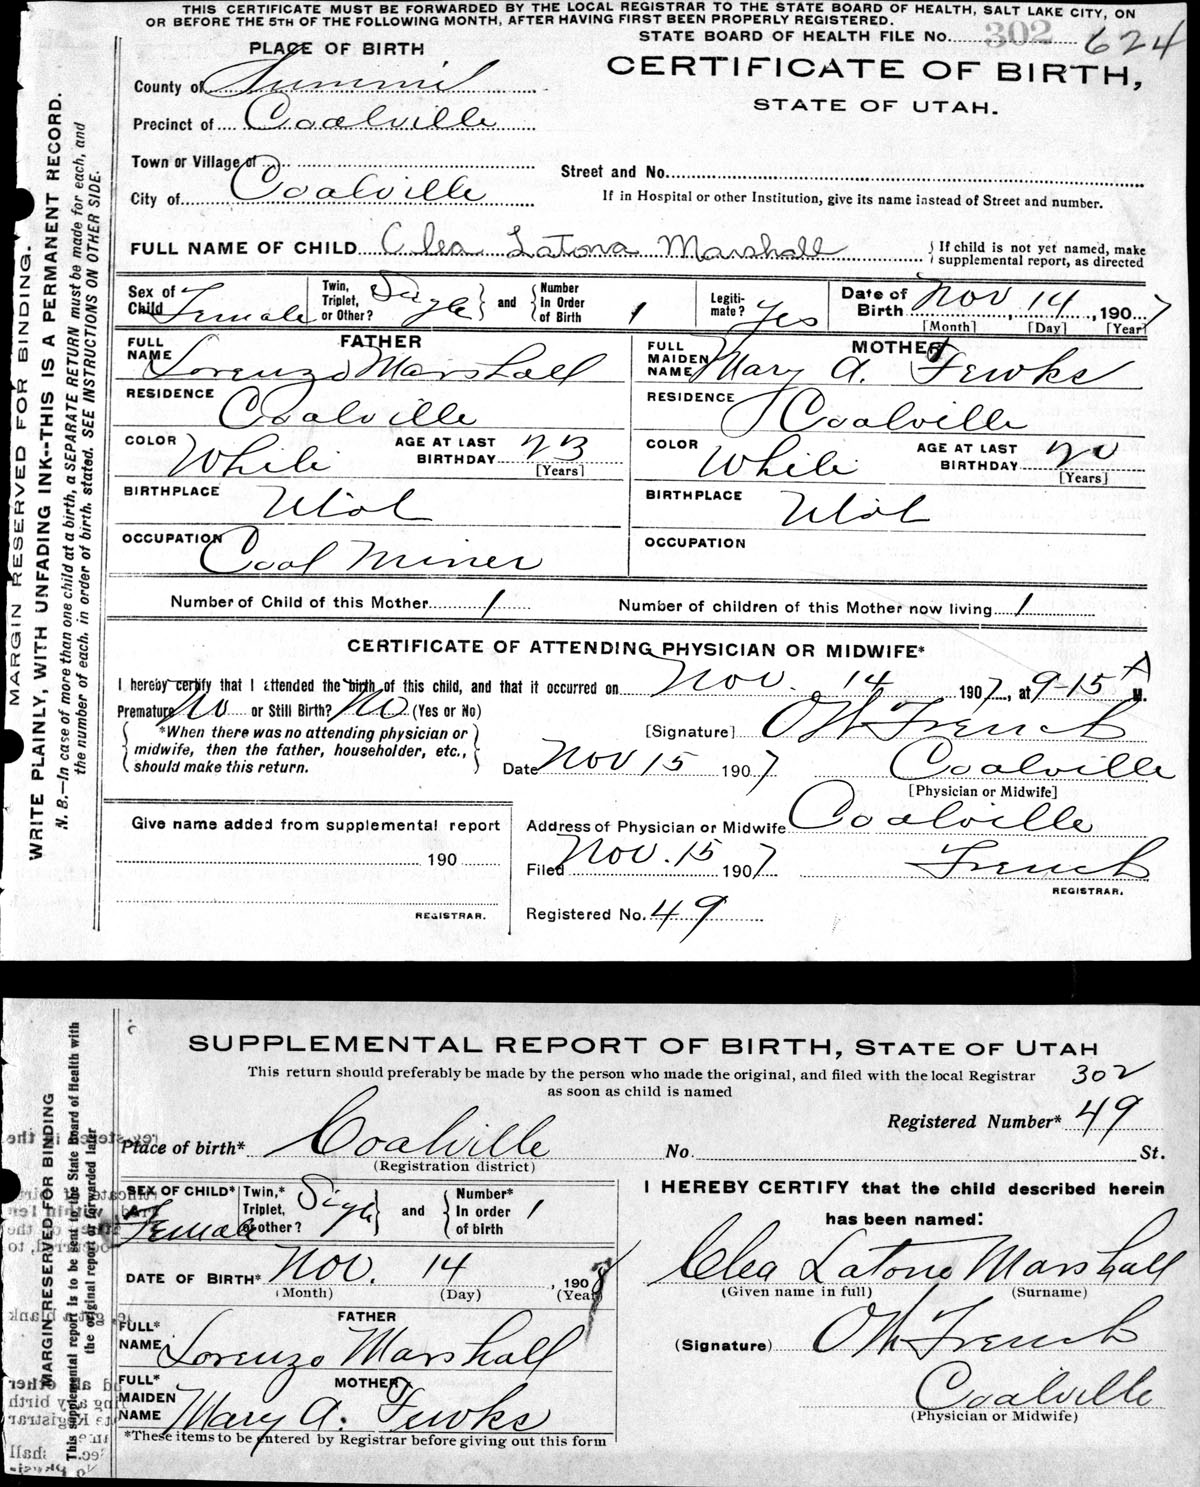 THIS CERTIFICATE MUST BE FORWARDED BY THE LOCAL REGISTRAR TO THE STATE BOARD OF HEALTH, SALT LAKE CITY, ON
OR BEFORE THE 5TH OF THE FOLLOWING MONTH, AFTER HAVING FIRST BEEN PROPERLY REGISTERED.
STATE BOARD OF HEALTH FILE NO. 302 624
PLACE OF BIRTH
CERTIFICATE OF BIRTH,
STATE OF UTAH.
County of Summit
Precinct of Coalville
Town or Village of
Street and No.
City of Coalville
If in Hospital or other Institution, give its name instead of Street and number.
FULL NAME OF CHILD Clea Latona Marshall
If child is not yet named, make supplemental report, as directed
Sex of Child Female
Twin, Triplet, or Other? Single and Number In Order of Birth 1
Legiti-mate? Yes
Date of Birth Nov 14, 1907
[Month] [Day] [Year]
FATHER
FULL NAME Lorenzo Marshall
RESIDENCE Coalville
COLOR White AGE AT LAST BIRTHDAY 23
[Years]
BIRTHPLACE Utah
OCCUPATION Coal Miner
MOTHER
FULL MAIDEN NAME Mary A. Fewks
RESIDENCE Coalville
COLOR White AGE AT LAST BIRTHDAY 20
[Years]
BIRTHPLACE Utah
OCCUPATION
Number of Child of this Mother 1 Number of children of this Mother now living 1
CERTIFICATE OF ATTENDING PHYSICIAN OR MIDWIFE*
I hereby certify that I attended the birth of this child, and that it occurred on Nov. 14 1907, at 9-15 A M.
Premature No or Still Birth? No (Yes or No)
*When there was no attending physician or
midwife, then the father, householder, etc.,
should make this return.
[Signature] O M French
Date Nov 15 1907 Coalville
[Physician or Midwife]
Give name added from supplemental report
190
REGISTRAR.
Address of Physician or Midwife Coalville
Filed Nov. 15 1907 French
REGISTRAR.
Registered No. 49
MARGIN RESERVED FOR BINDING.
WRITE PLAINLY, WITH UNFADING INK--THIS IS A PERMANENT RECORD.
N. B.—In case of more than one child at a birth, a SEPARATE RETURN must be made for each, and
the number of each, in order of birth, stated. SEE INSTRUCTIONS ON OTHER SIDE.
SUPPLEMENTAL REPORT OF BIRTH, STATE OF UTAH
This return should preferably be made by the person who made the original, and filed with the local Registrar
as soon as child is named
302
Registered Number* 49
Place of birth* Coalville No. St.
(Registration district)
SEX OF CHILD* Female
Twin,* Triplet, or other? Single and Number* In order of birth 1
DATE OF BIRTH* Nov. 14, 190
(Month) (Day) (Year)
FATHER
FULL* NAME Lorenzo Marshall
MOTHER
FULL* MAIDEN NAME Mary A. Fewks
*These items to be entered by Registrar before giving out this form
I HEREBY CERTIFY that the child described herein
has been named:
Clea Latona Marshall
(Given name in full) (Surname)
(Signature) O M French
Coalville
(Physician or Midwife)
MARGIN RESERVED FOR BINDING
This supplemental report is to be sent to the State Board of Health with
the original report or forwarded later